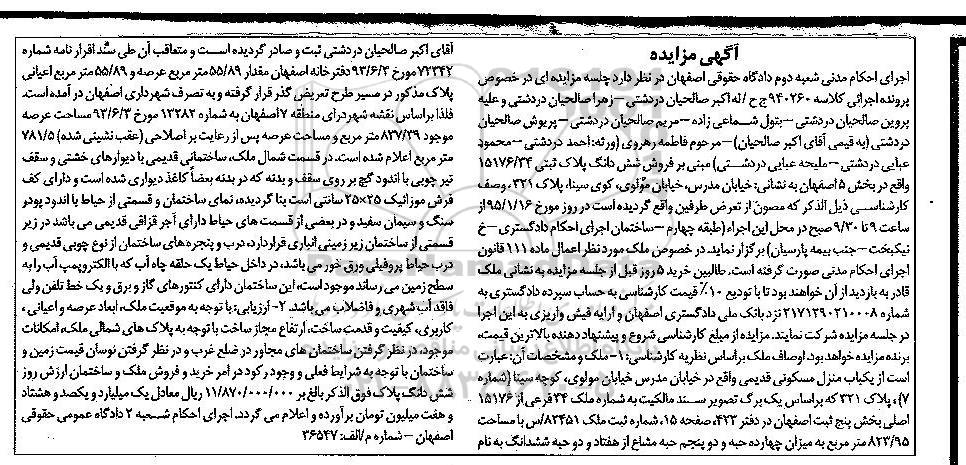 آگهی مزایده
اجرای احکام مدنی شعبه دوم دادگاه حقوقی اصفهان در نظر دارد جلسه مزایده ای در خصوص
پرونده اجرائی کلاسه ۹۴۰۲۶۰ ج ح / له اکبر صالحیان دردشتی – زهرا صالحیان دردشتی و علیه
پروین صالحیان دردشتی – بتول شماعی زاده – مریم صالحیان دردشتی – پریوش صالحیان
دردشتی (به قیمی آقای اکبر صالحیان) – مرحوم فاطمه رهروی (ورثه: احمد دردشتی – محمود
عبایی دردشتی – ملیحه عبایی دردشتی) مبنی بر فروش شش دانگ پلاک ثبتی ۱۵۱۷۶/۳۴
واقع در بخش ۵ اصفهان به نشانی: خیابان مدرس، خیابان مولوی، کوی سینا، پلاک ۳۲۱، وصف
کارشناسی ذیل الذکر که مصون از تعرض طرفین واقع گردیده است در روز مورخ ۹۵/۱/۱۶ از
ساعت ۹ تا ۹/۳۰ صبح در محل این اجراء (طبقه چهارم – ساختمان اجرای احکام دادگستری – خ
نیکبخت – جنب بیمه پارسیان) برگزار نماید. در خصوص ملک مورد نظر اعمال ماده ۱۱۱ قانون
اجرای احکام مدنی صورت گرفته است. طالبین خرید ۵ روز قبل از جلسه مزایده به نشانی ملک
قادر به بازدید از آن خواهند بود تا با تودیع ۱۰٪ قیمت کارشناسی به حساب سپرده دادگستری به
شماره ۲۱۷۱۲۹۰۲۱۰۰۰۸ نزد بانک ملی دادگستری اصفهان و ارایه فیش واریزی به این اجرا
در جلسه مزایده شرکت نمایند. مزایده از مبلغ کارشناسی شروع و پیشنهاد دهنده بالاترین قیمت،
برنده مزایده خواهد بود. اوصاف ملک براساس نظریه کارشناسی: ۱- ملک و مشخصات آن: عبارت
است از یکباب منزل مسکونی قدیمی واقع در خیابان مدرس خیابان مولوی، کوچه سینا (شماره
۷)، پلاک ۳۲۱ که براساس یک برگ تصویر سند مالکیت به شماره ملک ۳۴ فرعی از ۱۵۱۷۶
اصلی بخش پنج ثبت اصفهان در دفتر ۴۲۳، صفحه ۱۵، شماره ثبت ملک ۸۳۴۵۱/س با مساحت
۸۲۳/۹۵ متر مربع به میزان چهارده حبه و دو پنجم حبه مشاع از هفتاد و دو حبه ششدانگ به نام
آقای اکبر صالحیان دردشتی ثبت و صادر گردیده است و متعاقب آن طی سند اقرار نامه شماره
۷۲۳۴۲ مورخ ۹۳/۶/۳ دفتر خانه اصفهان مقدار ۵۵/۸۹ متر مربع عرصه و ۵۵/۸۹ متر مربع اعیانی
پلاک مذکور در مسیر طرح تعریض گذر قرار گرفته و به تصرف شهرداری اصفهان در آمده است.
فلذا براساس نقشه شهرداری منطقه ۷ اصفهان به شماره ۱۲۳۸۲ مورخ ۹۲/۶/۳ مساحت عرصه
موجود ۸۳۷/۳۹ متر مربع و مساحت عرصه پس از رعایت بر اصلاحی (عقب نشینی شده) ۷۸۱/۵
متر مربع اعلام شده است. در قسمت شمال ملک، ساختمانی قدیمی با دیوارهای خشتی و سقف
تیر چوبی با اندود گچ بر روی سقف و بدنه که در بدنه بعضاً کاغذ دیواری شده است و دارای کف
فرش موزائیک ۲۵×۲۵ سانتی است بنا گردیده، نمای ساختمان و قسمتی از حیاط با اندود پودر
سنگ و سیمان سفید و در بعضی از قسمت های حیاط دارای آجر قزاقی قدیمی می باشد در زیر
قسمتی از ساختمان زیر زمینی انباری قرار دارد، درب و پنجره های ساختمان از نوع چوبی قدیمی و
درب حیاط پروفیلی ورق خور می باشد، در داخل حیاط یک حلقه چاه آب که با الکتروپمپ آب را به
سطح زمین می رساند موجود است، این ساختمان دارای کنتورهای گاز و برق و یک خط تلفن ولی
فاقد آب شهری و فاضلاب می باشد. ۲- ارزیابی: با توجه به موقعیت ملک، ابعاد عرصه و اعیانی،
کاربری، کیفیت و قدمت ساخت، ارتفاع مجاز ساخت با توجه به پلاک های شمالی ملک، امکانات
موجود، در نظر گرفتن ساختمان های مجاور در ضلع غرب و در نظر گرفتن نوسان قیمت زمین و
ساختمان با توجه به شرایط فعلی و وجود رکود در امر خرید و فروش ملک و ساختمان ارزش روز
شش دانگ پلاک فوق الذکر بالغ بر ۱۱/۸۷۰/۰۰۰/۰۰۰ ریال معادل یک میلیارد و یکصد و هشتاد
و هفت میلیون تومان برآورده و اعلام می گردد. اجرای احکام شعبه ۲ دادگاه عمومی حقوقی
اصفهان – شماره م/الف: ۳۶۵۴۷